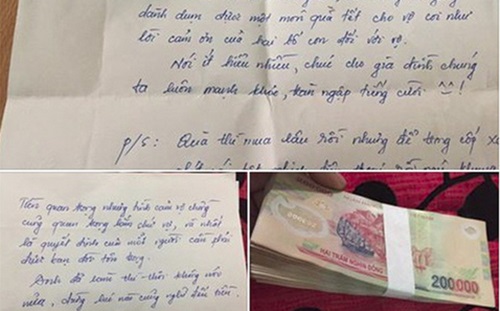 dành dụm được một món quà tết cho vợ coi như
lời cảm ơn của hai bố con đối với vợ.
Nói ít hiểu nhiều, chúc cho gia đình chúng
ta luôn mạnh khỏe, tràn ngập tiếng cười ^^!
p/s: Quà thì mua lâu rồi nhưng để trong cốp
Tiền quan trọng nhưng tình cảm vợ chồng
cũng quan trọng lắm chứ vợ, và nhất
là quyết định của một người cần phải
được bạn đời tôn trọng.
Anh đổ
nữa, đừng lúc nào cũng nghĩ đến tiền.
200000
HAI TRĂM NGHÌN ĐỒNG
200.000